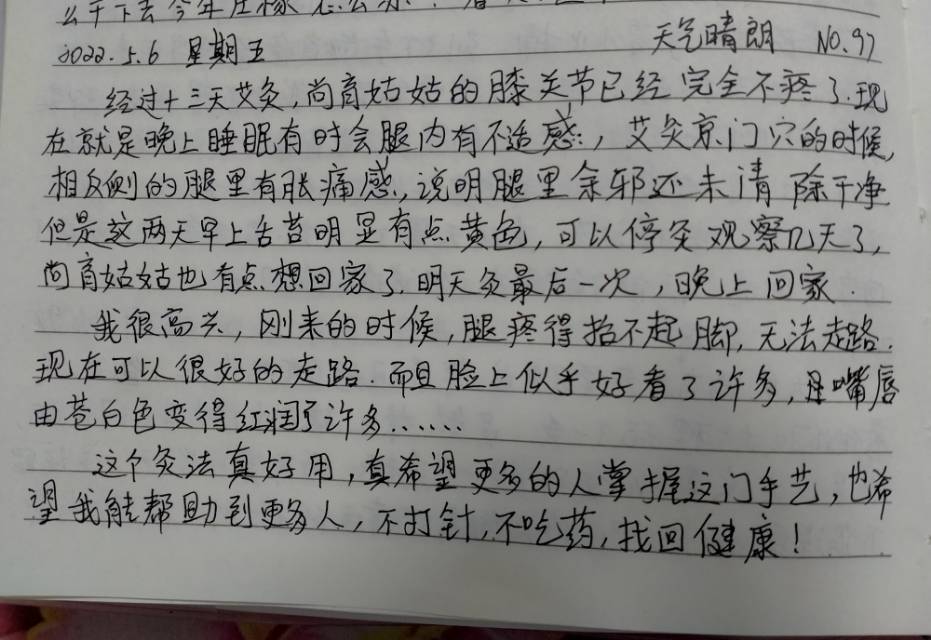 么干下去今年庄稼怎么办
2022.5.6 星期五 天气晴朗 NO.97
经过十三天艾灸,尚育姑姑的膝关节已经完全不疼了.现
在就是晚上睡眠有时会腿内有不适感,艾灸京门穴的时候,
相反侧的腿里有胀痛感,说明腿里余邪还未清除干净
但是这两天早上舌苔明显有点黄色,可以停灸观察几天了,
尚育姑姑也有点想回家了.明天灸最后一次,晚上回家.
我很高兴,刚来的时候,腿疼得抬不起脚,无法走路.
现在可以很好的走路.而且脸上似乎好看了许多,嘴唇
由苍白色变得红润了许多......
这个灸法真好用,真希望更多的人掌握这门手艺,也希
望我能帮助到更多人,不打针,不吃药,找回健康!